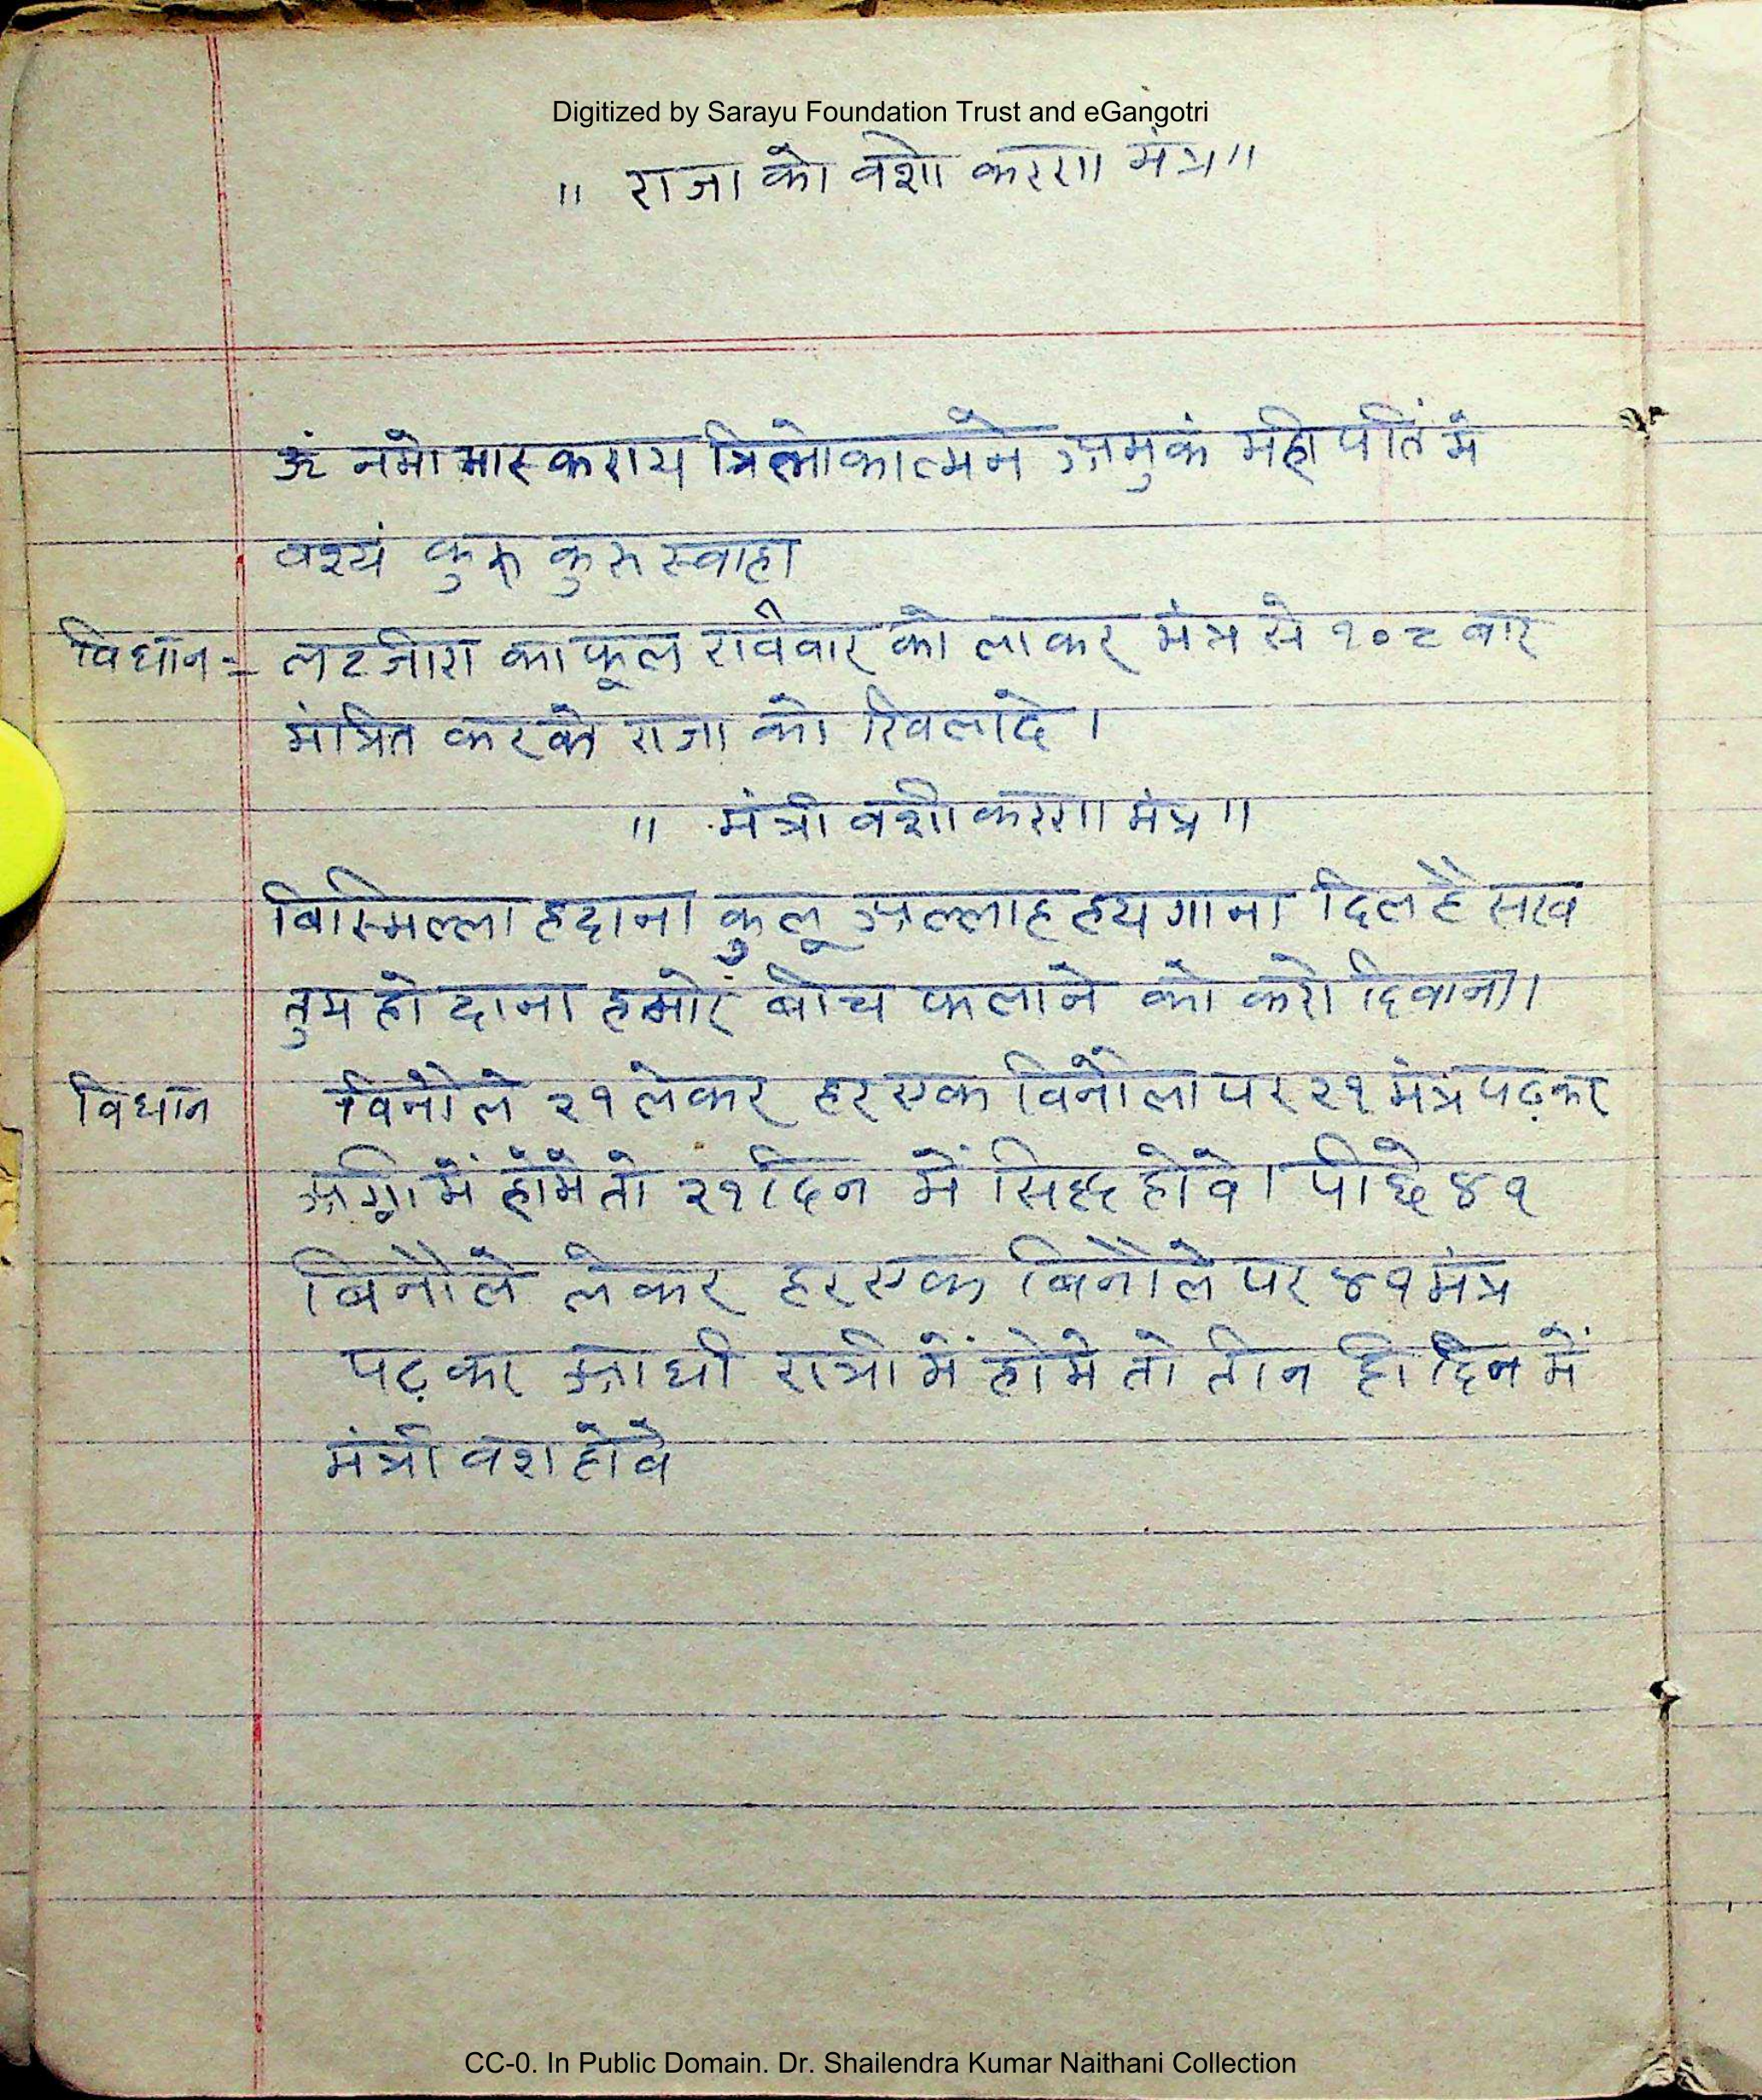 Digitized by Sarayu Foundation Trust and eGangotri
॥ राजा को वशी करण मंत्र ॥
ॐ नमो भास्कराय त्रिलोकात्मने अमुकं महीपतिं मे
वश्यं कुरु कुरु स्वाहा
विधान := लटजीरा का फूल रविवार को लाकर मंत्र से १०८ बार
मंत्रित करके राजा को खिलादे ।
॥ मंत्री वशीकरण मंत्र ॥
बिस्मिल्लाह दाना कुलू अल्लाह हयगाना दिल है सख
तुम हो दाना हमारे बीच फलाने को करो दिवाना।
विधान विनौले २१ लेकर हर एक विनौला पर २१ मंत्र पढ़कर
अग्नि में होमे तो २१ दिन में सिद्ध होवे। पीछे ४१
बिनौले लेकर हर एक बिनौले पर ४१ मंत्र
पढ़कर आधी रात्री में होमे तो तीन ही दिन में
मंत्री वश होवे
CC-0. In Public Domain. Dr. Shailendra Kumar Naithani Collection